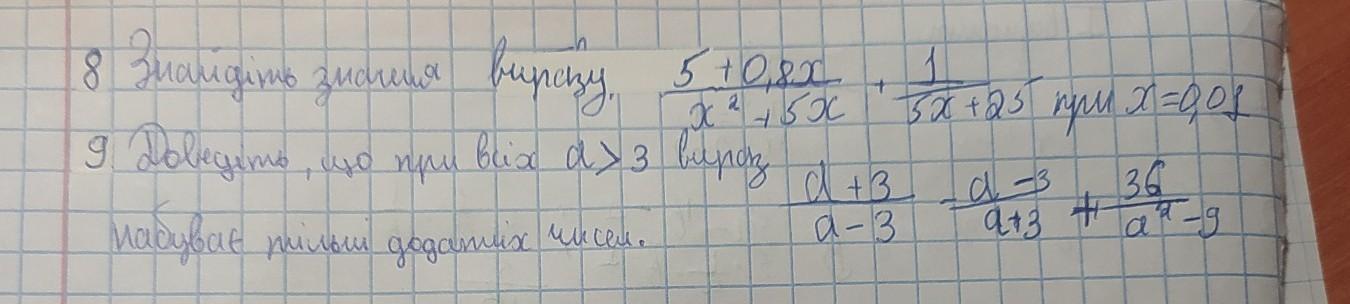 8 Знайдіть значення виразу. (5 + 0,8x)/(x² + 5x) + 1/(5x + 25) при x = 0,01
9. Доведіть, що при всіх a > 3 вираз (a + 3)/(a - 3) - (a - 3)/(a + 3) + 36/(a² - 9)
набуває тільки додатніх чисел.